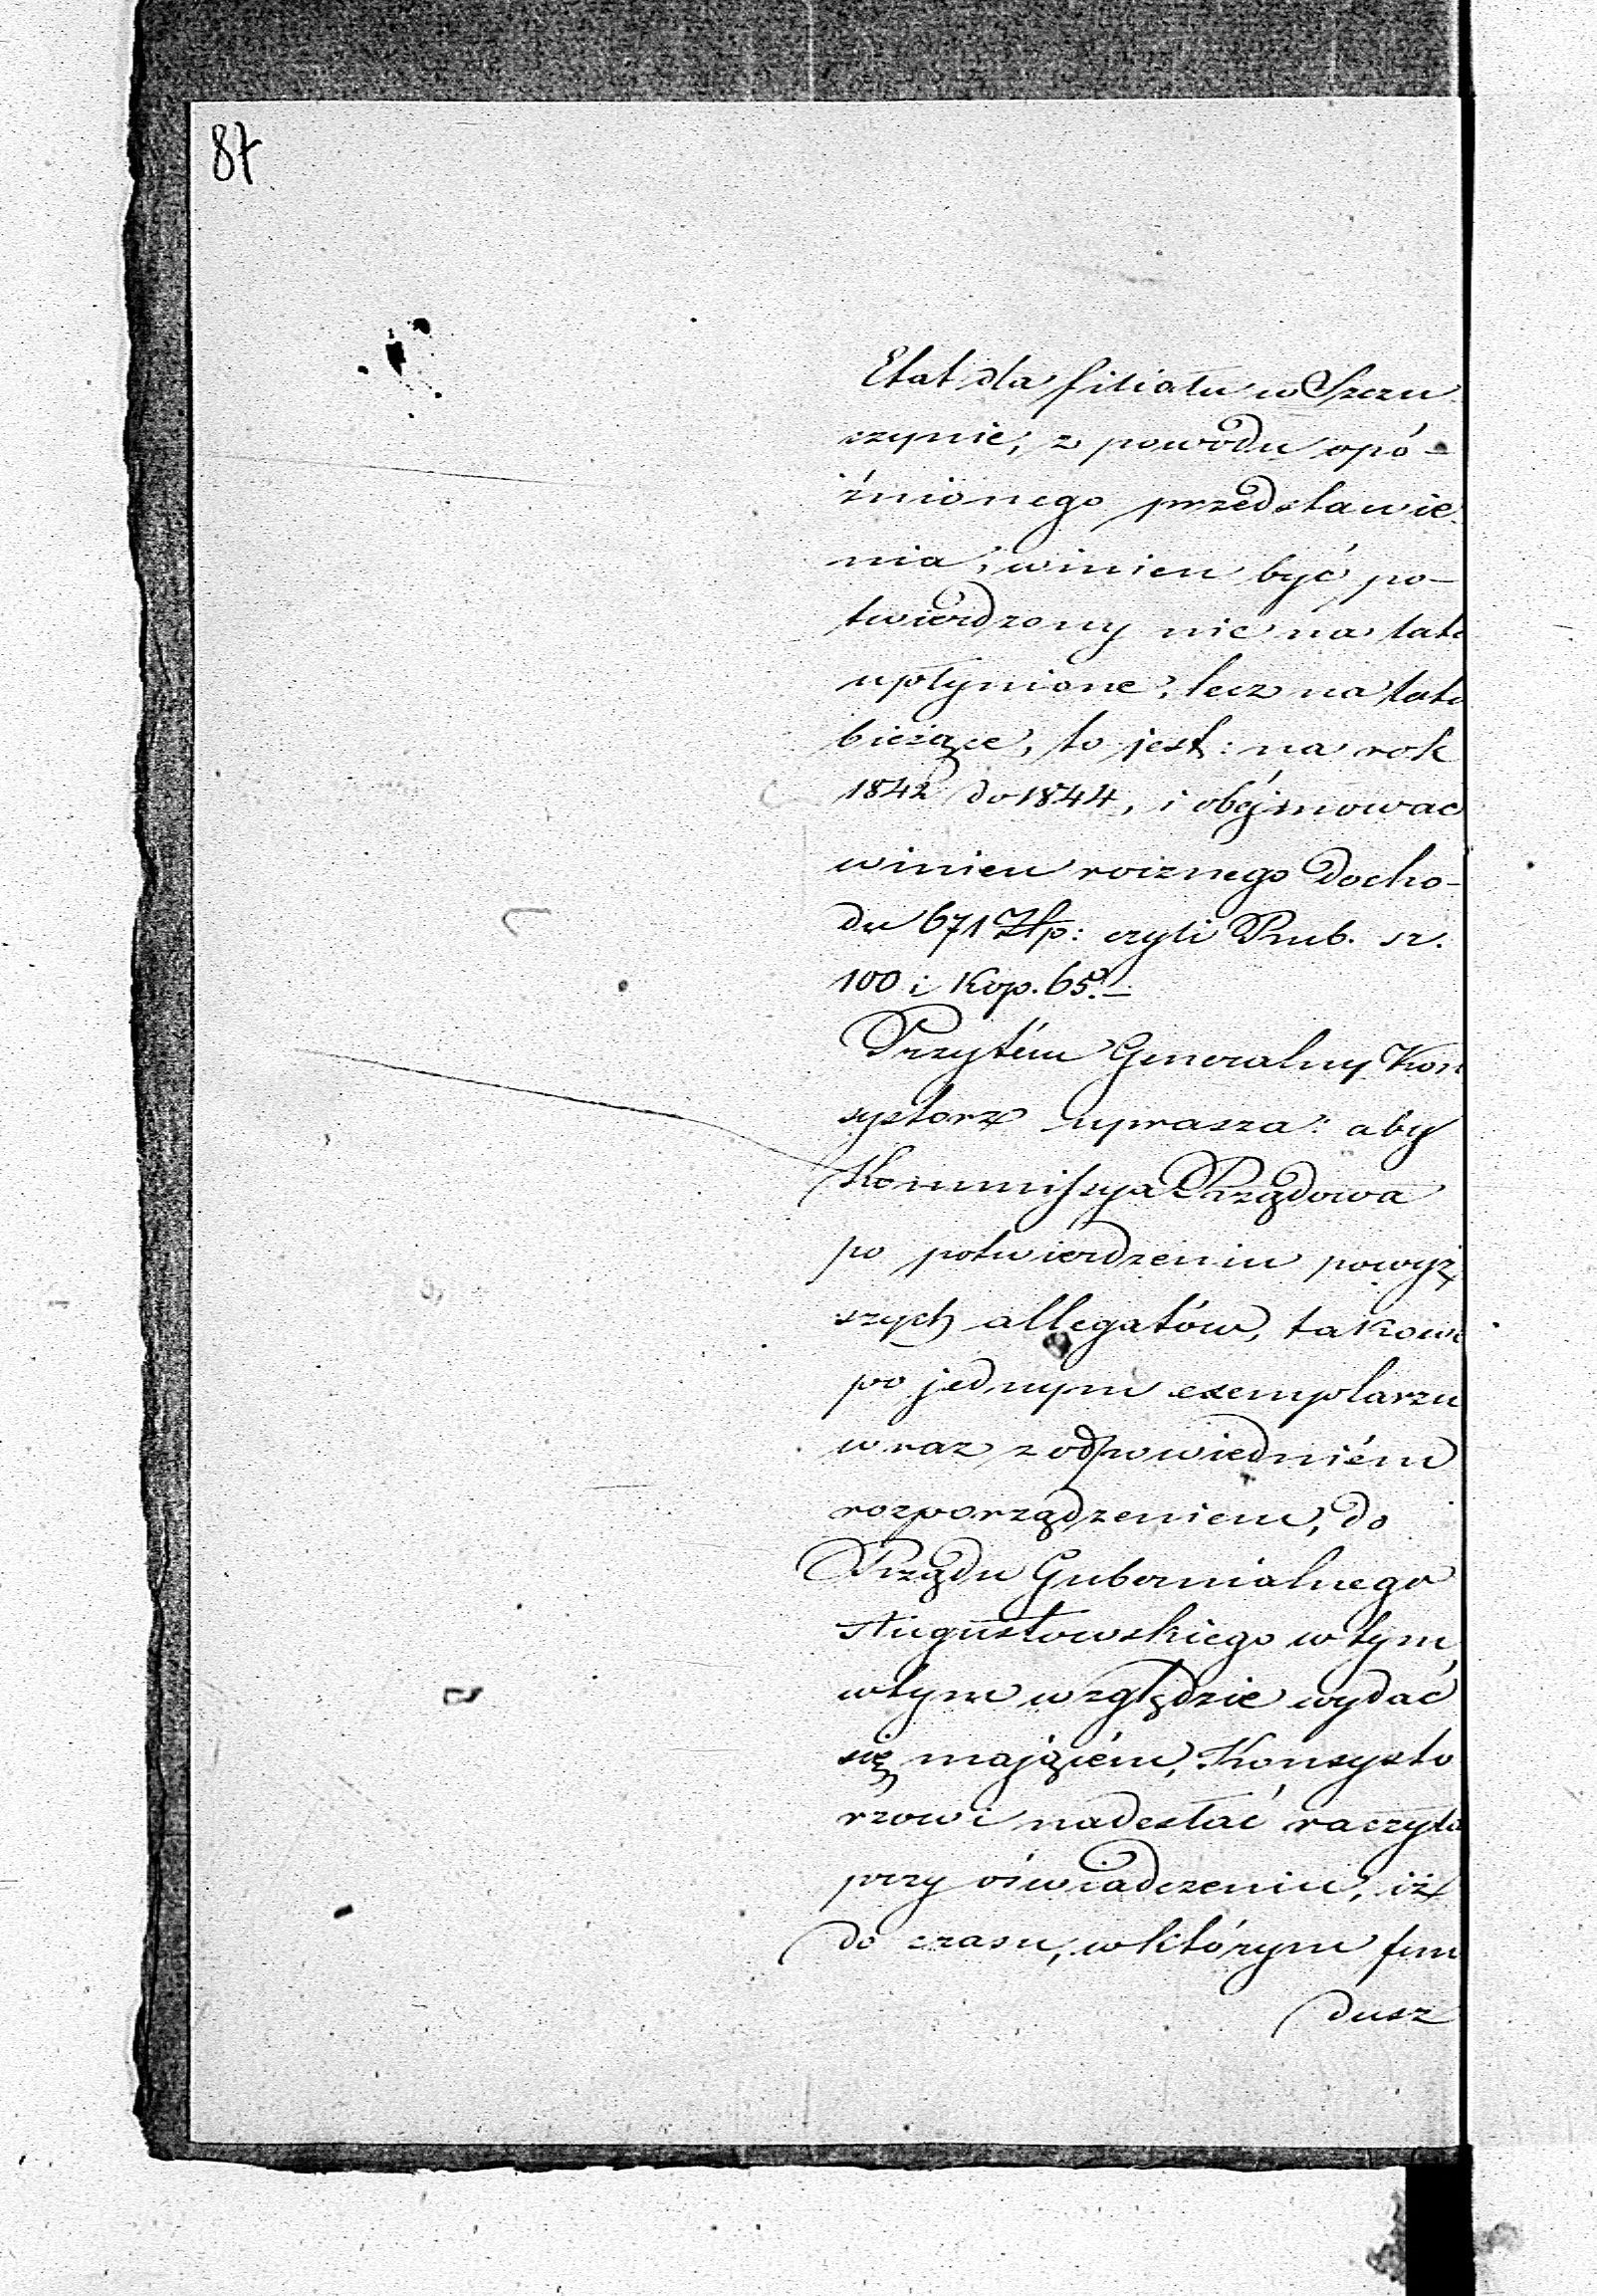 87
Etat dla filiału w Szczu
czynie, z powodu opó-
źnionego przedstawie
nia, winien być po-
twierdzony nie na lata
upłynione, lecz na lata
bieżące, to jest: na rok
1842 do 1844, i obejmować
winien rocznego docho-
du 671 Złp: czyli Rub. sr.
100 i Kop. 65.—
Przytém Generalny Kon
systorz uprasza: aby
Kommissya Rządowa
po potwierdzeniu powyż
szych allegatów, takowe
po jednym exemplarzu
wraz z odpowiedniém
rozporządzeniem, do
Rządu Gubernialnego
Augustowskiego w tym,
w tym względzie wydać
się mającém, Konsysto
rzowi nadesłać raczyła
przy oświadczeniu, iż
do czasu, w którym fun
dusz